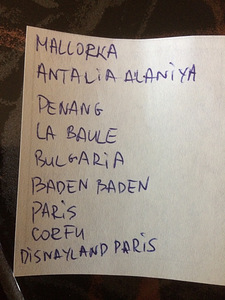 MALLORKA
ANTALIA ALANIYA
DENANG
LA BAULE
BULGARIA
BADEN BADEN
PARIS
CORFU
DISNAYLAND PARIS